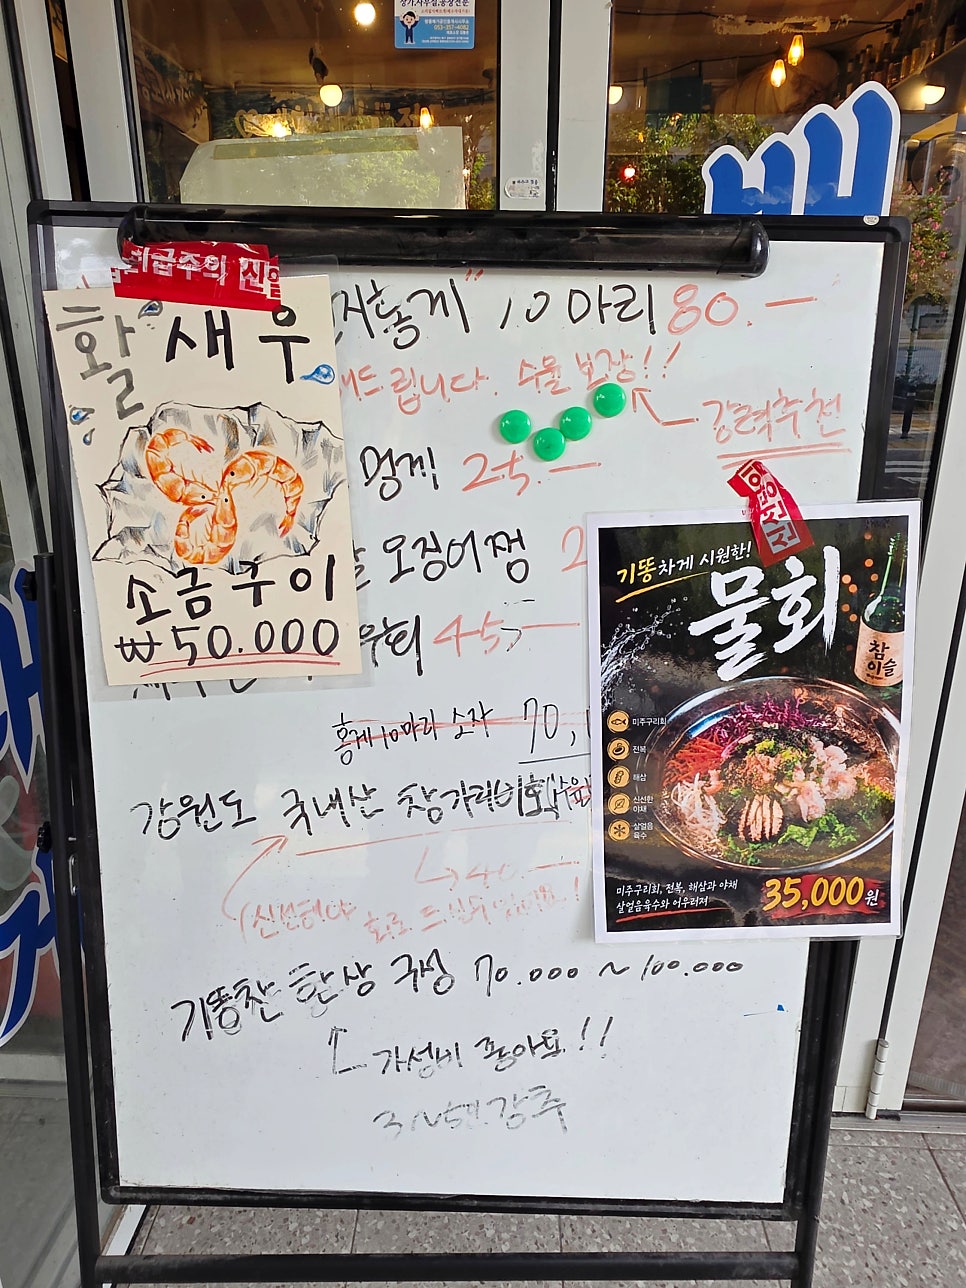 상가,사무실,공장전문
053-357-4082
취급주의
활 새우
소금구이
₩50.000
홍게" 10마리 80.—
드립니다. 수율 보장!!
강력추천
멍게 25.—
오징어찜 2
회 45,—
홍게10마리 소자 70,
강원도 국내산 참가리비회
↳40.—
(신선해야 회로 드실수있어요!
기똥찬 한상 구성 70.000 ~ 100.000
가성비 좋아요!!
3~5人 강추
기똥차게 시원한!
물회
참
이슬
미주구리회
전복
해삼
신선한
야채
살얼음
육수
미주구리회, 전복, 해삼과 야채
살얼음육수와 어우러져
35,000원